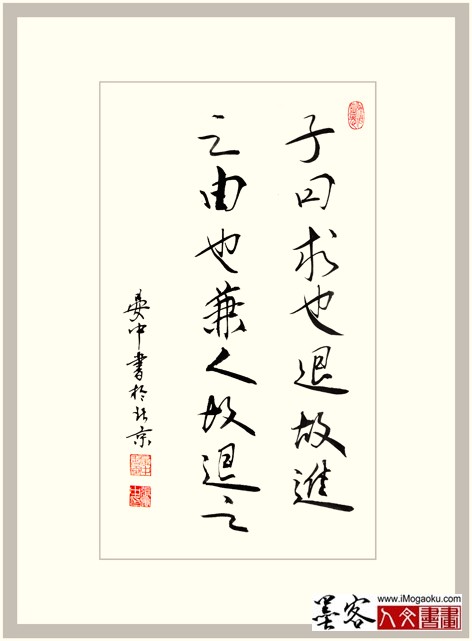 子曰求也退故進
之由也兼人故退之
晏中書於北京
www.iMogaoku.com
墨客
人文書畫